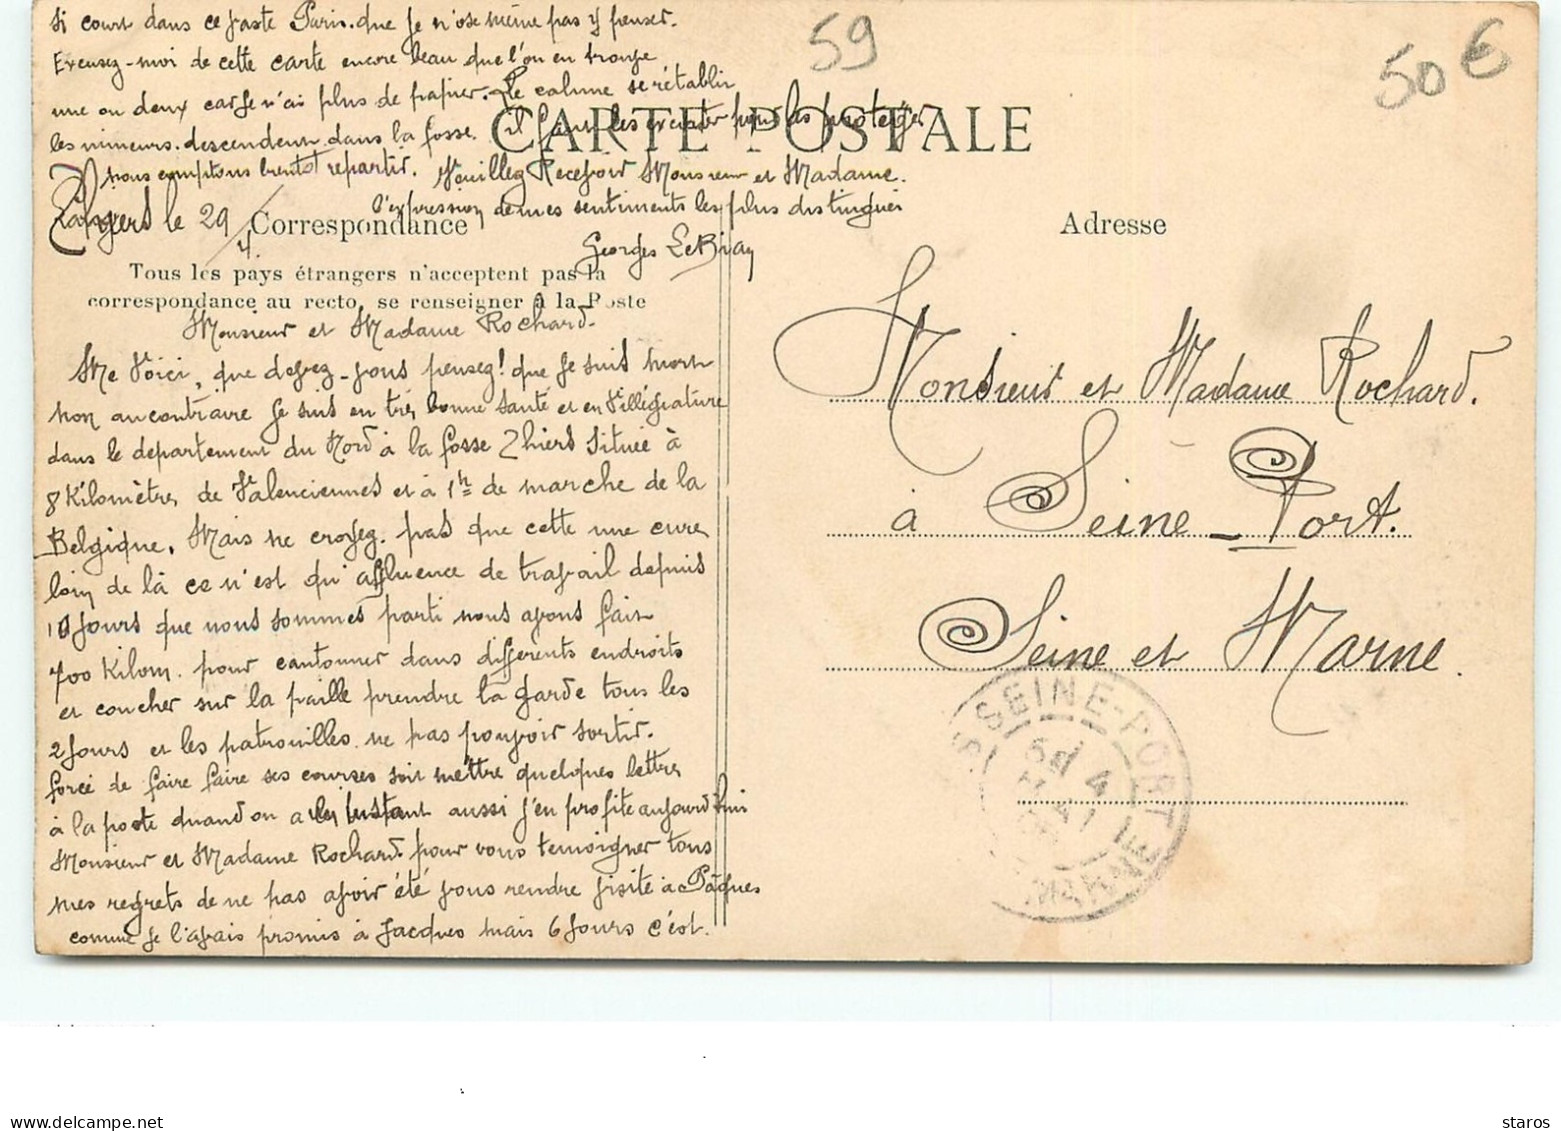 59
50 €
CARTE POSTALE
Correspondance
Adresse
Tous les pays étrangers n'acceptent pas la
correspondance au recto, se renseigner à la Poste
le 29/4.
Monsieur et Madame Rochard.
Me Voici, que devez-vous pensez! que je suis mort
non au contraire je suis en très bonne santé et en Villégiature
dans le département du Nord à la fosse Thiers Située à
8 Kilomètres de Valenciennes et à 1h de marche de la
Belgique. Mais ne croyez pas que cette une cure
loin de là ce n'est qu'affluence de travail depuis
10 jours que nous sommes parti nous avons fait
700 Kilom. pour cantonner dans differents endroits
et coucher sur la paille prendre la garde tous les
2 jours et les patrouilles ne pas pouvoir sortir.
forcé de faire faire ses courses soit mettre quelques lettres
à la poste quand on a un instant aussi j'en profite aujourd'hui
Monsieur et Madame Rochard. pour vous temoigner tous
mes regrets de ne pas avoir été vous rendre visite à Pâques
comme je l'avais promis à Jacques mais 6 jours c'est.
si court dans ce vaste Paris. que je n'ose même pas y penser.
Excusez-moi de cette carte encore beau que l'on en trouve
une ou deux car je n'ai plus de papier. Le calme se rétablir
les mineurs. descendent dans la fosse. il faut les escorter pour les protéger
nous comptons bientôt repartir. Veuillez Recevoir Monsieur et Madame.
l'expression de mes sentiments les plus distingués
Georges LeBray
Monsieur et Madame Rochard.
à Seine-Port.
Seine et Marne.
SEINE-PORT
4
MARNE
staros